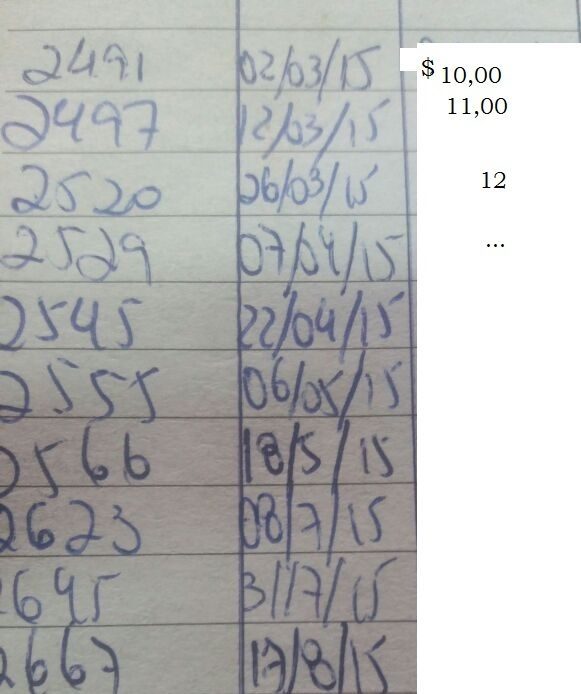 2491 02/03/15 $ 10,00
2497 12/03/15 11,00
2520 26/03/15 12
2529 07/04/15 ...
2545 22/04/15
2555 06/05/15
2566 18/5/15
2623 08/7/15
2645 31/7/15
2667 17/8/15